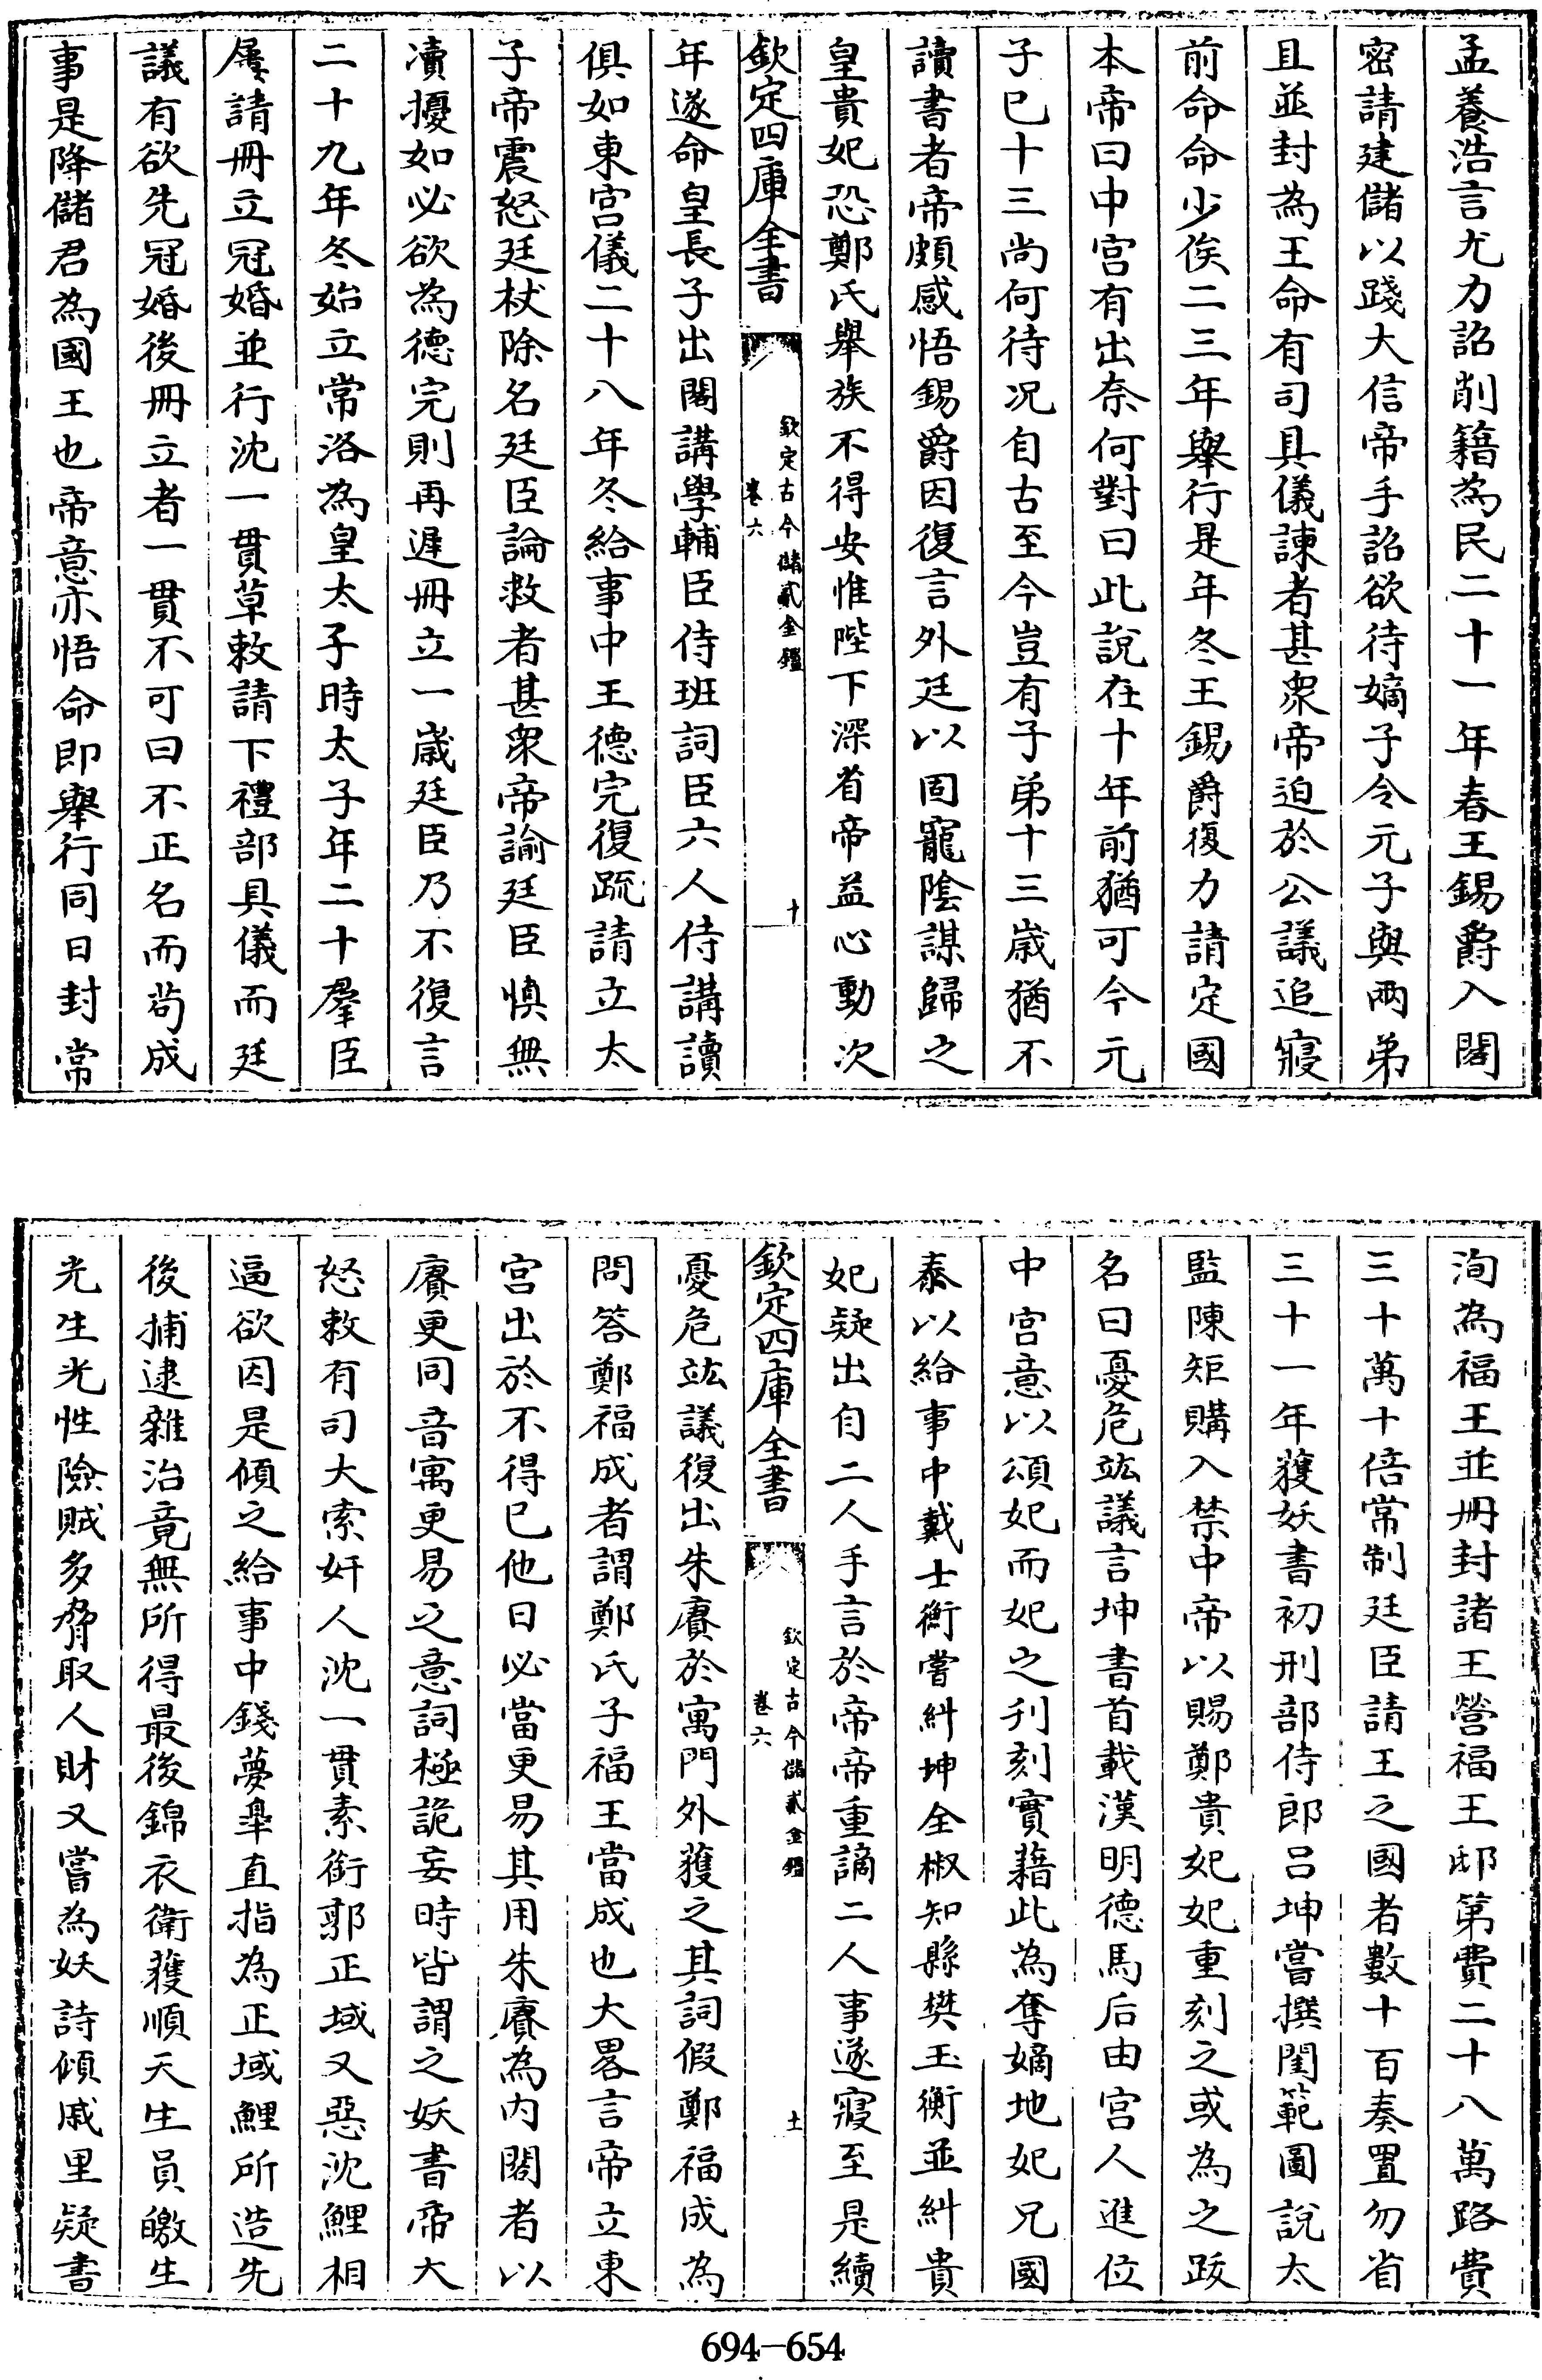 孟養浩言尤力詔削籍為民二十一年春王錫爵入閣
密請建儲以踐大信帝手詔欲待嫡子令元子與兩弟
且並封為王命有司具儀諫者甚衆帝迫於公議追寢
前命命少俟二三年舉行是年冬王錫爵復力請定國
本帝曰中宮有出奈何對曰此說在十年前猶可今元
子已十三尚何待况自古至今豈有子弟十三歲猶不
讀書者帝頗感悟錫爵因復言外廷以固寵陰謀歸之
皇貴妃恐鄭氏舉族不得安惟陛下深省帝益心動次
欽定四庫全書
欽定古今儲貳金鑑
卷六
十
年遂命皇長子出閣講學輔臣侍班詞臣六人侍講讀
俱如東宮儀二十八年冬給事中王德完復疏請立太
子帝震怒廷杖除名廷臣論救者甚衆帝諭廷臣慎無
凟擾如必欲為德完則再遲冊立一歲廷臣乃不復言
二十九年冬始立常洛為皇太子時太子年二十羣臣
屢請冊立冠婚並行沈一貫草敕請下禮部具儀而廷
議有欲先冠婚後冊立者一貫不可曰不正名而苟成
事是降儲君為國王也帝意亦悟命即舉行同日封常
洵為福王並冊封諸王營福王邸第費二十八萬路費
三十萬十倍常制廷臣請王之國者數十百奏置勿省
三十一年獲妖書初刑部侍郎吕坤嘗撰閨範圖說太
監陳矩購入禁中帝以賜鄭貴妃妃重刻之或為之跋
名曰憂危竑議言坤書首載漢明德馬后由宮人進位
中宮意以頌妃而妃之刋刻實藉此為奪嫡地妃兄國
泰以給事中戴士衡嘗糾坤全椒知縣樊玉衡並糾貴
妃疑出自二人手言於帝帝重謫二人事遂寢至是續
欽定四庫全書
欽定古今儲貳金鑑
卷六
十一
憂危竑議復出朱賡於寓門外獲之其詞假鄭福成為
問答鄭福成者謂鄭氏子福王當成也大畧言帝立東
宮出於不得已他日必當更易其用朱賡為内閣者以
賡更同音寓更易之意詞極詭妄時皆謂之妖書帝大
怒敕有司大索奸人沈一貫素銜郭正域又惡沈鯉相
逼欲因是傾之給事中錢夢臯直指為正域鯉所造先
後捕逮雜治竟無所得最後錦衣衛獲順天生員皦生
光生光性險賊多脅取人財又嘗為妖詩傾戚里疑書
694-654